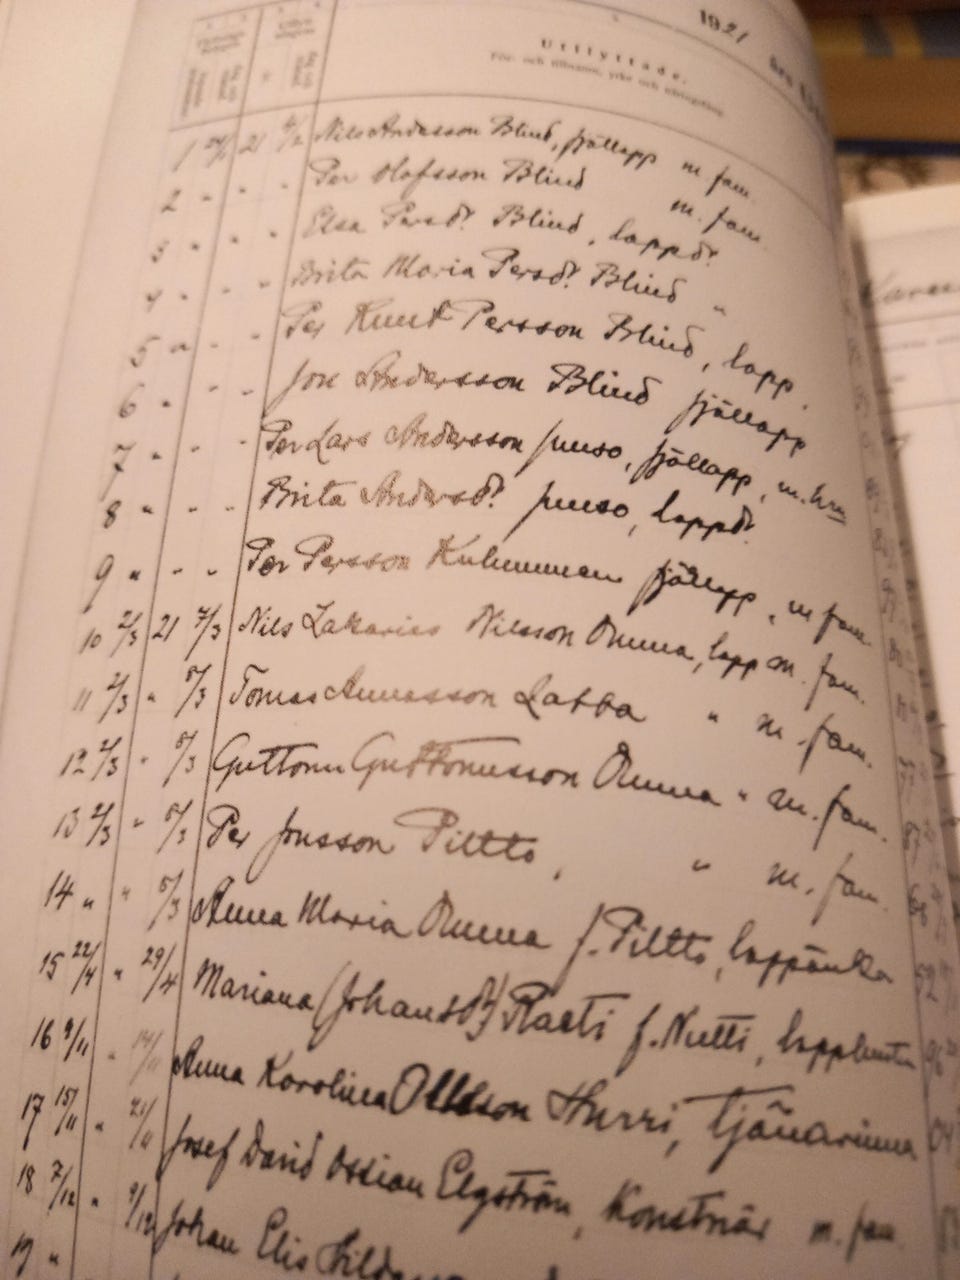 1921 års
Utflyttade.
För- och tillnamn, yrke och
1 21 Nils Andersson Blind, fjällapp m fam.
2 " " " Per Olofsson Blind m. fam.
3 " " " Elsa Persdr Blind, lappdr
4 " " " Brita Maria Persdr Blind "
5 " " " Per Knut Persson Blind, lapp.
6 " " " Jon Andersson Blind fjällapp
7 " " " Per Lars Andersson Juuso, fjällapp, m. hru
8 " " " Brita Andersdr Juuso, lappdr
9 " " " Per Persson Kuhmunen fjällapp, m fam.
10 2/3 21 7/3 Nils Zakarias Nilsson Omma, lapp m. fam.
11 2/3 " 5/3 Tomas Labba " m. fam.
12 2/3 " 5/3 Guttorm Guttormsson Omma " m. fam.
13 2/3 " 5/3 Per Jonsson Piltto, " m. fam.
14 " " 5/3 Anna Maria Omma f. Piltto, lappänka
15 22/4 " 29/4 Mariana (Johansdr) Rasti f. Nutti, lapphustru
16 9/11 " 14/11 Anna Karolina Olsson Hurri, tjänarinna
17 15/11 " 21/11 Josef David Ossian Elgström, Konstnär m. fam.
18 7/12 " 9/12 Johan Elis
19 "